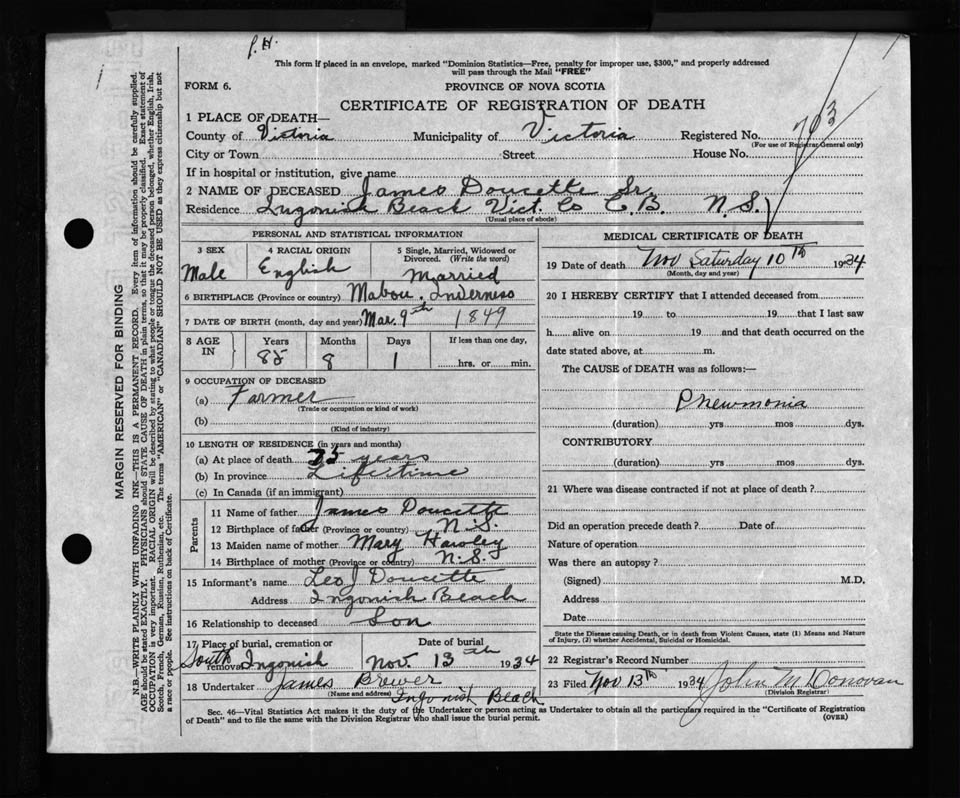 P. H.
This form if placed in an envelope, marked "Dominion Statistics—Free, penalty for improper use, $300," and properly addressed
will pass through the Mail "FREE"
FORM 6.
PROVINCE OF NOVA SCOTIA
CERTIFICATE OF REGISTRATION OF DEATH
703
1 PLACE OF DEATH—
County of Victoria Municipality of Victoria Registered No.
(For use of Registrar General only)
City or Town Street House No.
If in hospital or institution, give name
2 NAME OF DECEASED James Doucette Sr.
Residence Ingonish Beach Vict. Co C.B. N.S.
(Usual place of abode)
PERSONAL AND STATISTICAL INFORMATION
3 SEX 4 RACIAL ORIGIN 5 Single, Married, Widowed or
Divorced. (Write the word)
Male English Married
6 BIRTHPLACE (Province or country) Mabou. Inverness
7 DATE OF BIRTH (month, day and year) Mar. 9th 1849
8 AGE IN Years Months Days If less than one day,
85 8 1 hrs. or min.
9 OCCUPATION OF DECEASED
(a) Farmer
(Trade or occupation or kind of work)
(b)
(Kind of industry)
10 LENGTH OF RESIDENCE (in years and months)
(a) At place of death 75 years
(b) In province Lifetime
(c) In Canada (if an immigrant)
Parents
11 Name of father James Doucette
12 Birthplace of father (Province or country) N.S.
13 Maiden name of mother Mary Hawley
14 Birthplace of mother (Province or country) N.S.
15 Informant's name Leo J Doucette
Address Ingonish Beach
16 Relationship to deceased Son
17 Place of burial, cremation or Date of burial
removal South Ingonish Nov. 13th 1934
18 Undertaker James Brewer
(Name and address) Ingonish Beach
MEDICAL CERTIFICATE OF DEATH
19 Date of death Nov Saturday 10th 1934
(Month, day and year)
20 I HEREBY CERTIFY that I attended deceased from
19 to 19 that I last saw
h alive on 19 and that death occurred on the
date stated above, at m.
The CAUSE of DEATH was as follows:—
Pnewmonia
(duration) yrs mos dys.
CONTRIBUTORY
(duration) yrs mos dys.
21 Where was disease contracted if not at place of death?
Did an operation precede death? Date of
Nature of operation
Was there an autopsy?
(Signed) M.D.
Address
Date
State the Disease causing Death, or in death from Violent Causes, state (1) Means and Nature
of Injury, (2) whether Accidental, Suicidal or Homicidal.
22 Registrar's Record Number
23 Filed Nov 13th 1934 John M Donovan
(Division Registrar)
Sec. 46—Vital Statistics Act makes it the duty of the Undertaker or person acting as Undertaker to obtain all the particulars required in the "Certificate of Registration
of Death" and to file the same with the Division Registrar who shall issue the burial permit.
(OVER)
MARGIN RESERVED FOR BINDING
N.B.—WRITE PLAINLY WITH UNFADING INK—THIS IS A PERMANENT RECORD. Every item of information should be carefully supplied.
AGE should be stated EXACTLY. PHYSICIANS should STATE CAUSE OF DEATH in plain terms, so that it may be properly classified. Exact statement of
OCCUPATION is very important. RACIAL ORIGIN will be described by stating to what people or tongue the deceased person belonged, whether English, Irish,
Scotch, French, German, Russian, Ruthenian, etc. The terms "AMERICAN" or "CANADIAN" SHOULD NOT BE USED as they express citizenship but not
a race or people. See instructions on back of Certificate.